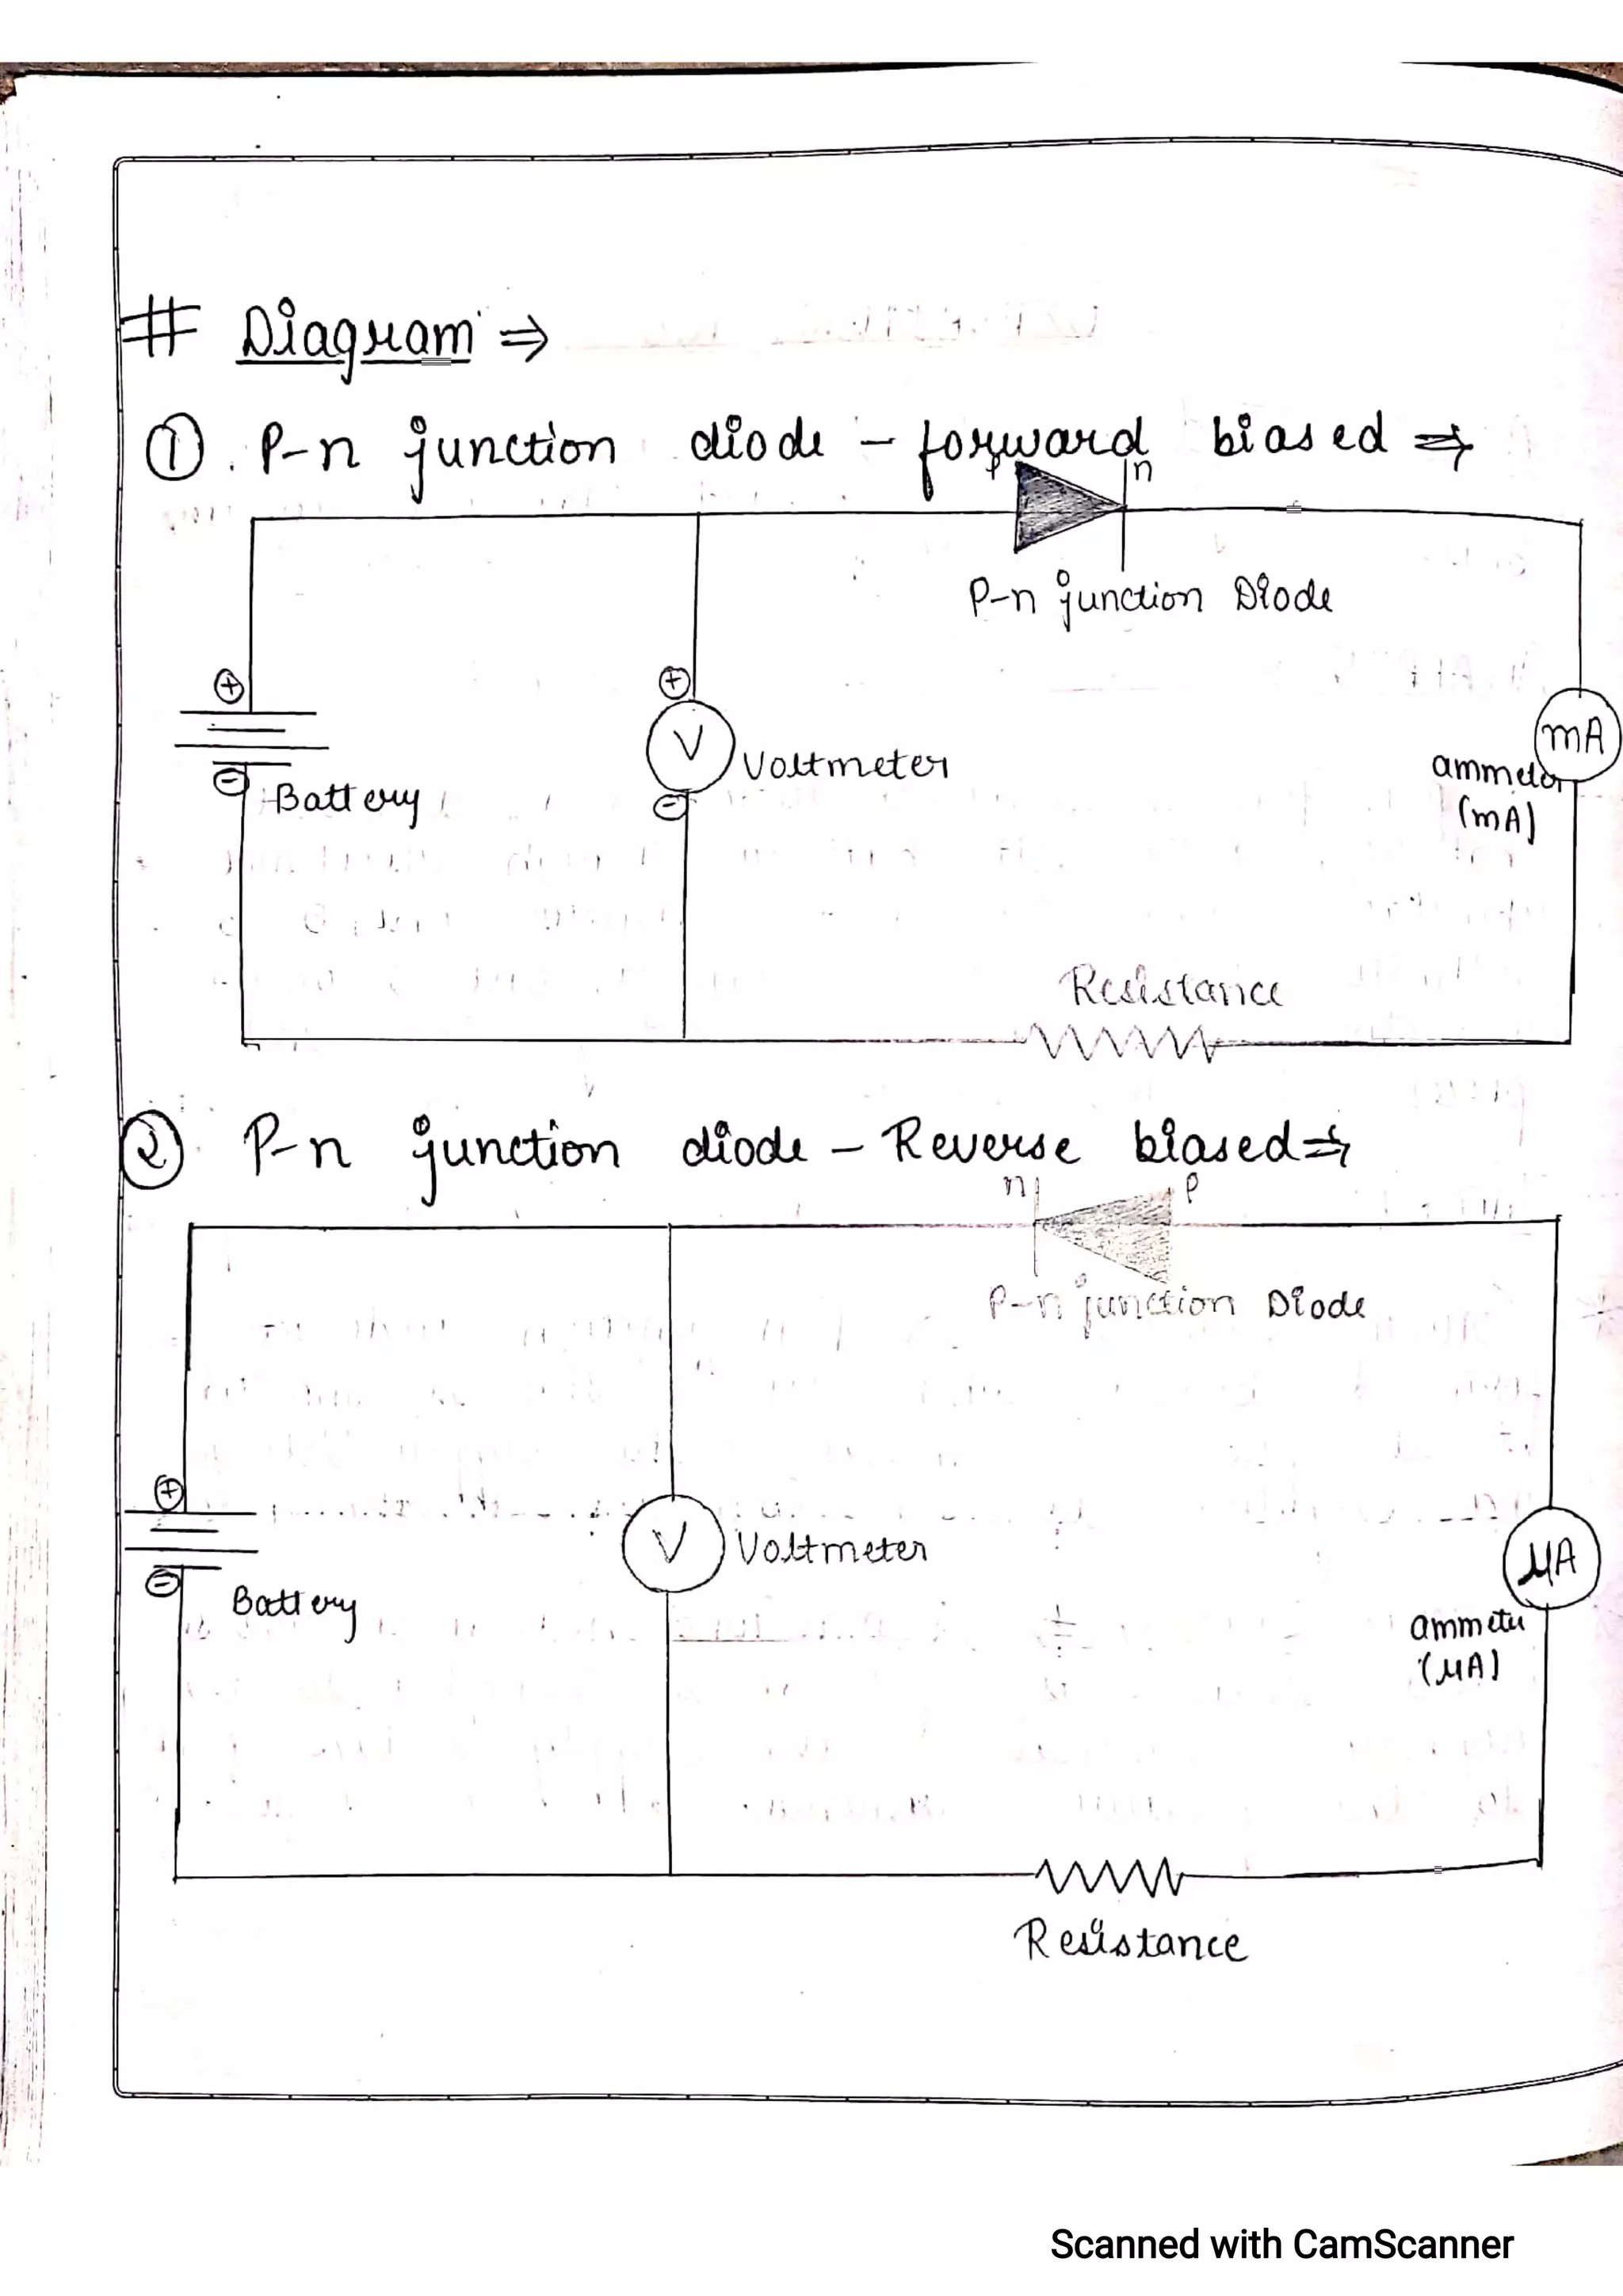 # Diagram ⇒
① . P-n junction diode - forward biased ⇒
P n
P-n junction Diode
⊕ ⊕
V Voltmeter
mA
ammeter
(mA)
⊖ Battery ⊖
Resistance
② P-n junction diode - Reverse biased ⇒
n P
P-n junction Diode
⊕
V Voltmeter
μA
⊖ Battery
ammeter
(μA)
Resistance
Scanned with CamScanner